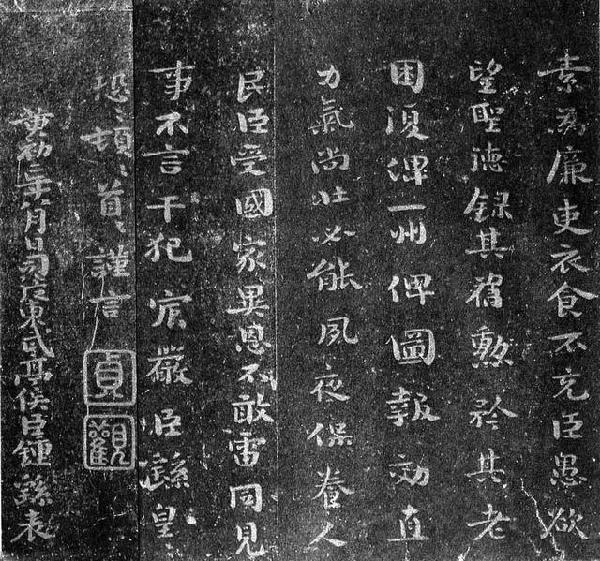 素為廉吏衣食不充臣愚欲
望聖德錄其舊勲矜其老
困復俾一州俾圖報効直
力氣尚壯必能夙夜保養人
民臣受國家異恩不敢雷同見
事不言干犯宸嚴臣繇皇
恐々頓々首々謹言
貞觀
黃初二年八月日司徒東武亭侯臣鍾繇表